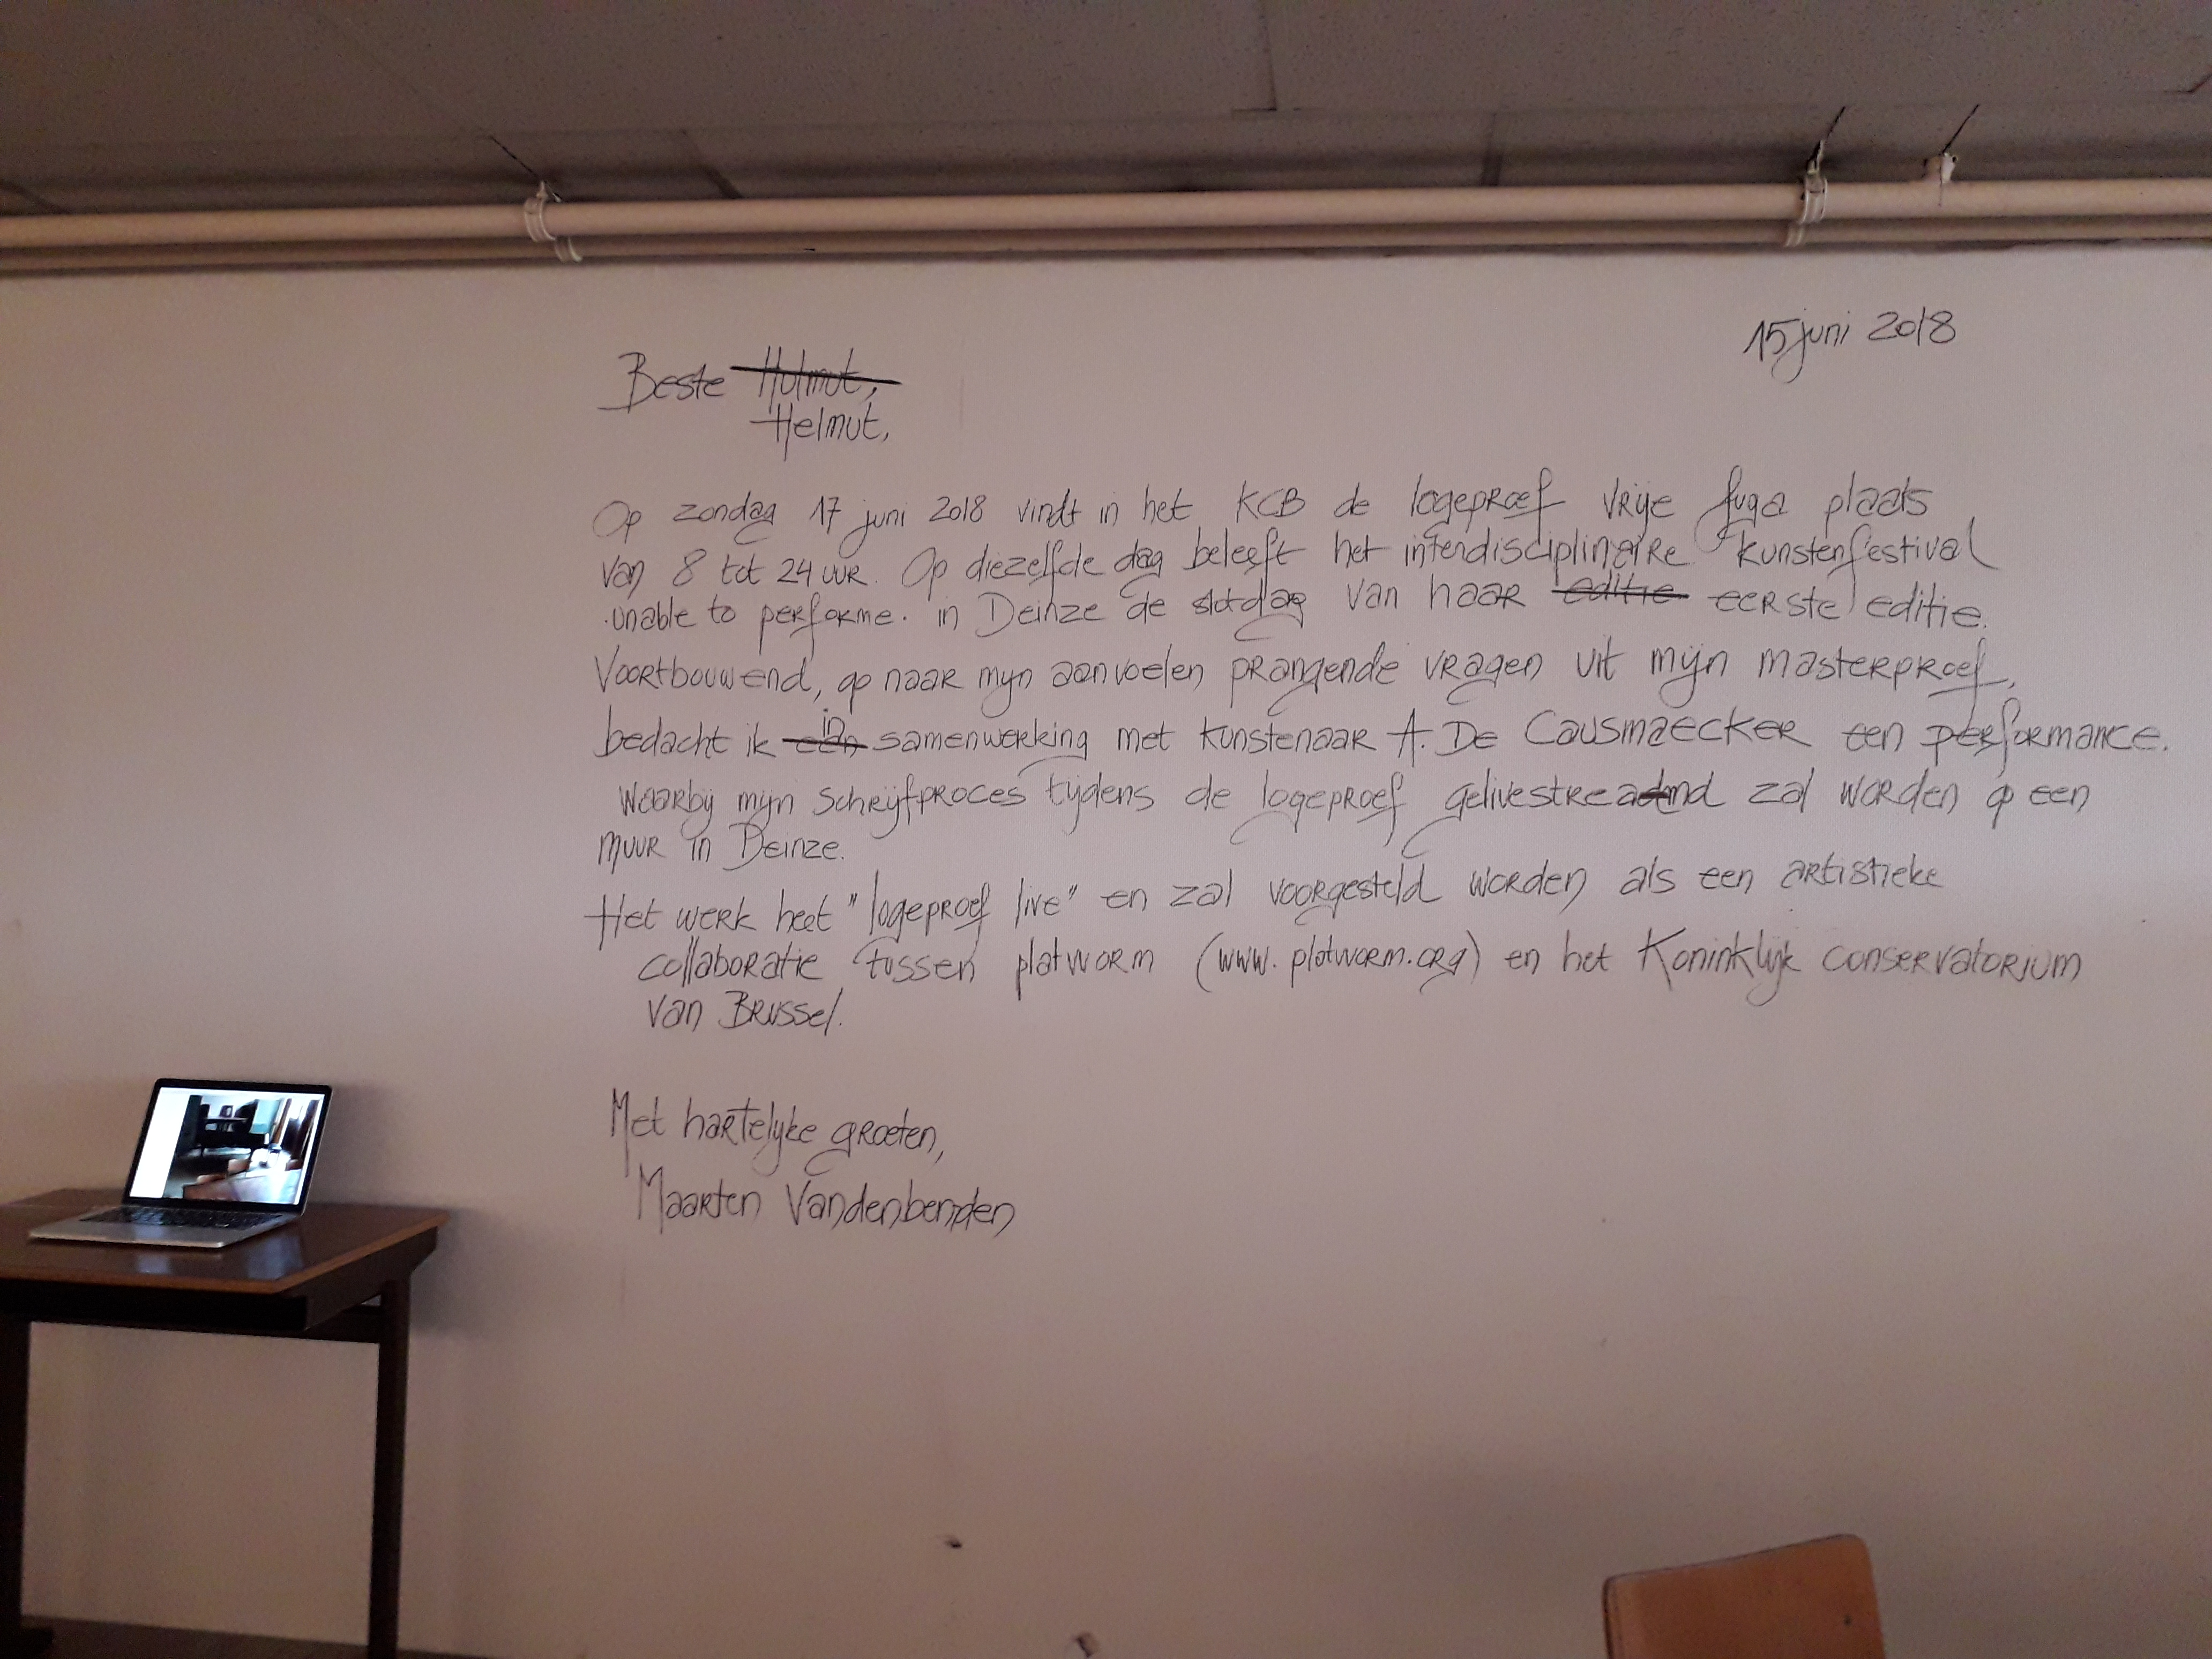 15 juni 2018
Beste Hulmut,
Helmut,
Op zondag 17 juni 2018 vindt in het KCB de logeproef vrije fuga plaats
van 8 tot 24 uur. Op diezelfde dag beleeft het interdisciplinaire kunstenfestival
·unable to performe· in Deinze de slotdag van haar editie eerste editie.
Voortbouwend, op naar mijn aanvoelen prangende vragen uit mijn masterproef,
bedacht ik een in samenwerking met kunstenaar A. De Causmaecker een performance.
Waarbij mijn schrijfproces tijdens de logeproef gelivestreadmd zal worden op een
muur in Deinze.
Het werk heet "logeproef live" en zal voorgesteld worden als een artistieke
collaboratie tussen platworm (www.platworm.org) en het Koninklijk conservatorium
van Brussel.
Met hartelijke groeten,
Maarten Vandenbemden